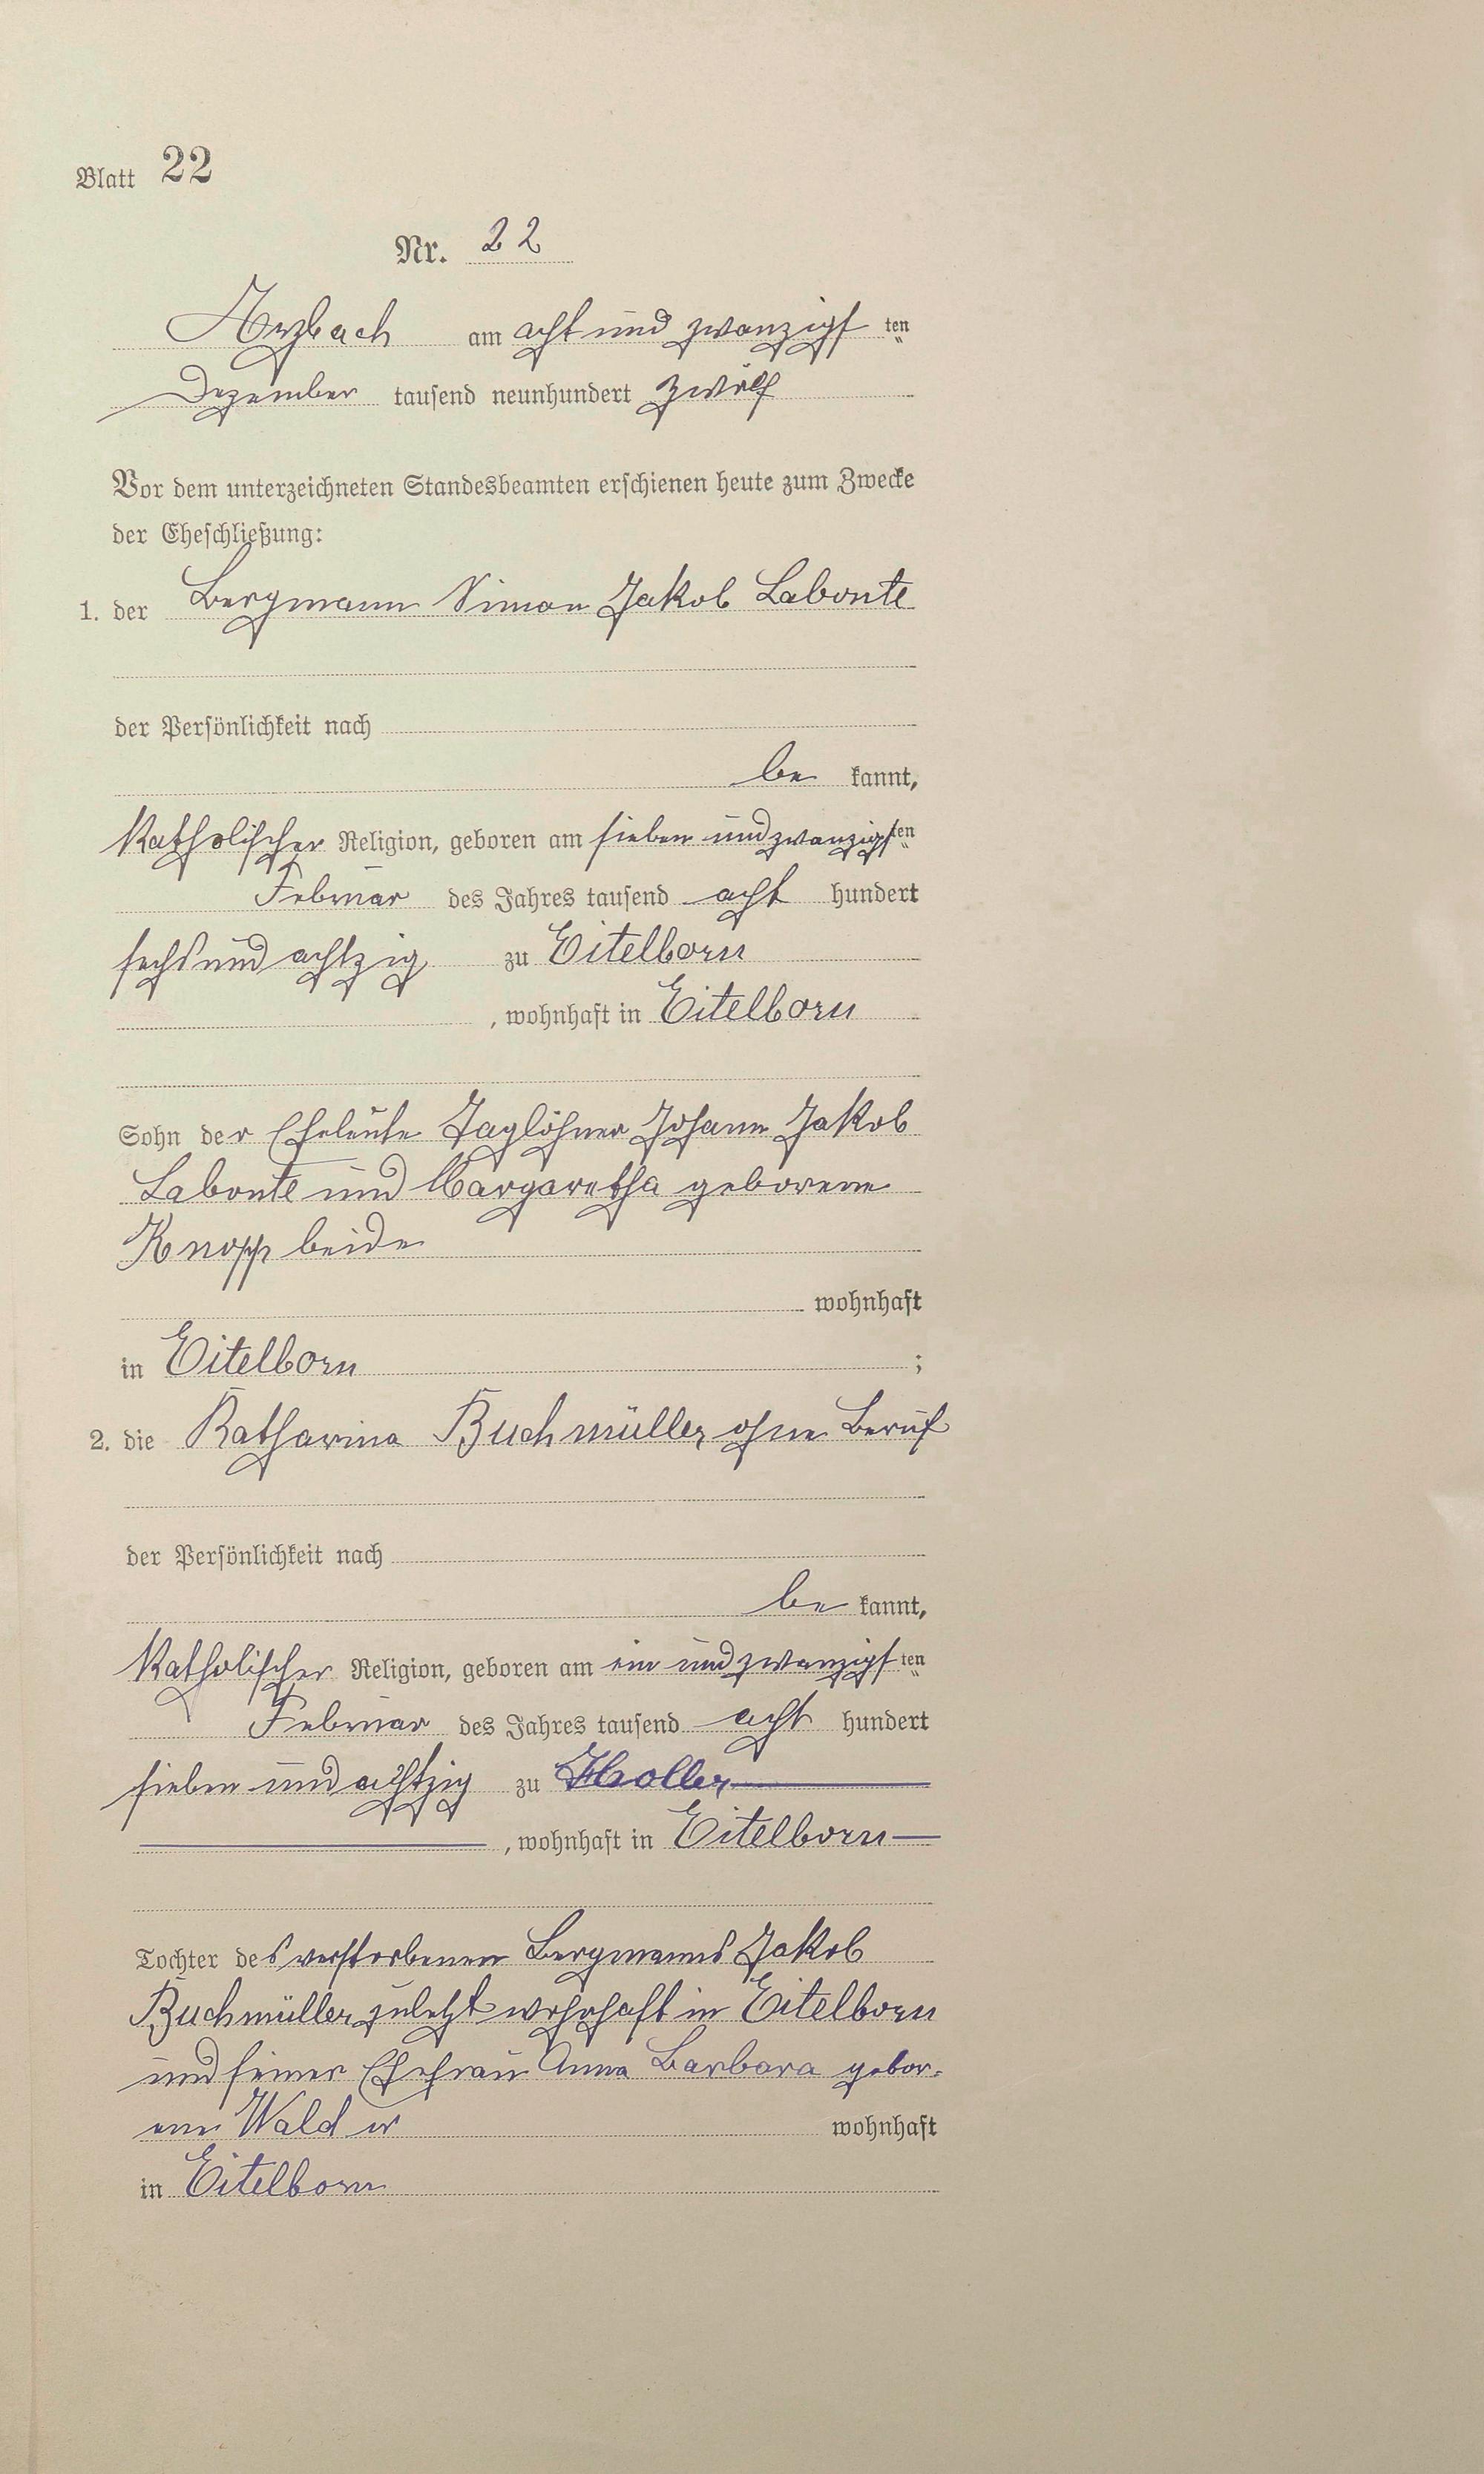 Blatt 22
Nr. 22
Arzbach am acht und zwanzigsten
Dezember tausend neunhundert zwölf
Vor dem unterzeichneten Standesbeamten erschienen heute zum Zwecke
der Eheschließung:
1. der Bergmann Simon Jakob Labonte
der Persönlichkeit nach
be kannt,
katholischer Religion, geboren am sieben und zwanzigsten
Februar des Jahres tausend acht hundert
sechs und achtzig zu Eitelborn
, wohnhaft in Eitelborn
Sohn der Eheleute Taglöhner Johann Jakob
Labonte und Margaretha geborene
Knopp beide
wohnhaft
in Eitelborn ;
2. die Katharina Buchmüller, ohne Beruf
der Persönlichkeit nach
be kannt,
katholischer Religion, geboren am ein und zwanzigsten
Februar des Jahres tausend acht hundert
sieben und achtzig zu Holler
, wohnhaft in Eitelborn
Tochter des verstorbenen Bergmanns Jakob
Buchmüller, zuletzt wohnhaft in Eitelborn
und seiner Ehefrau Anna Barbara gebor-
ene wohnhaft
in Eitelborn